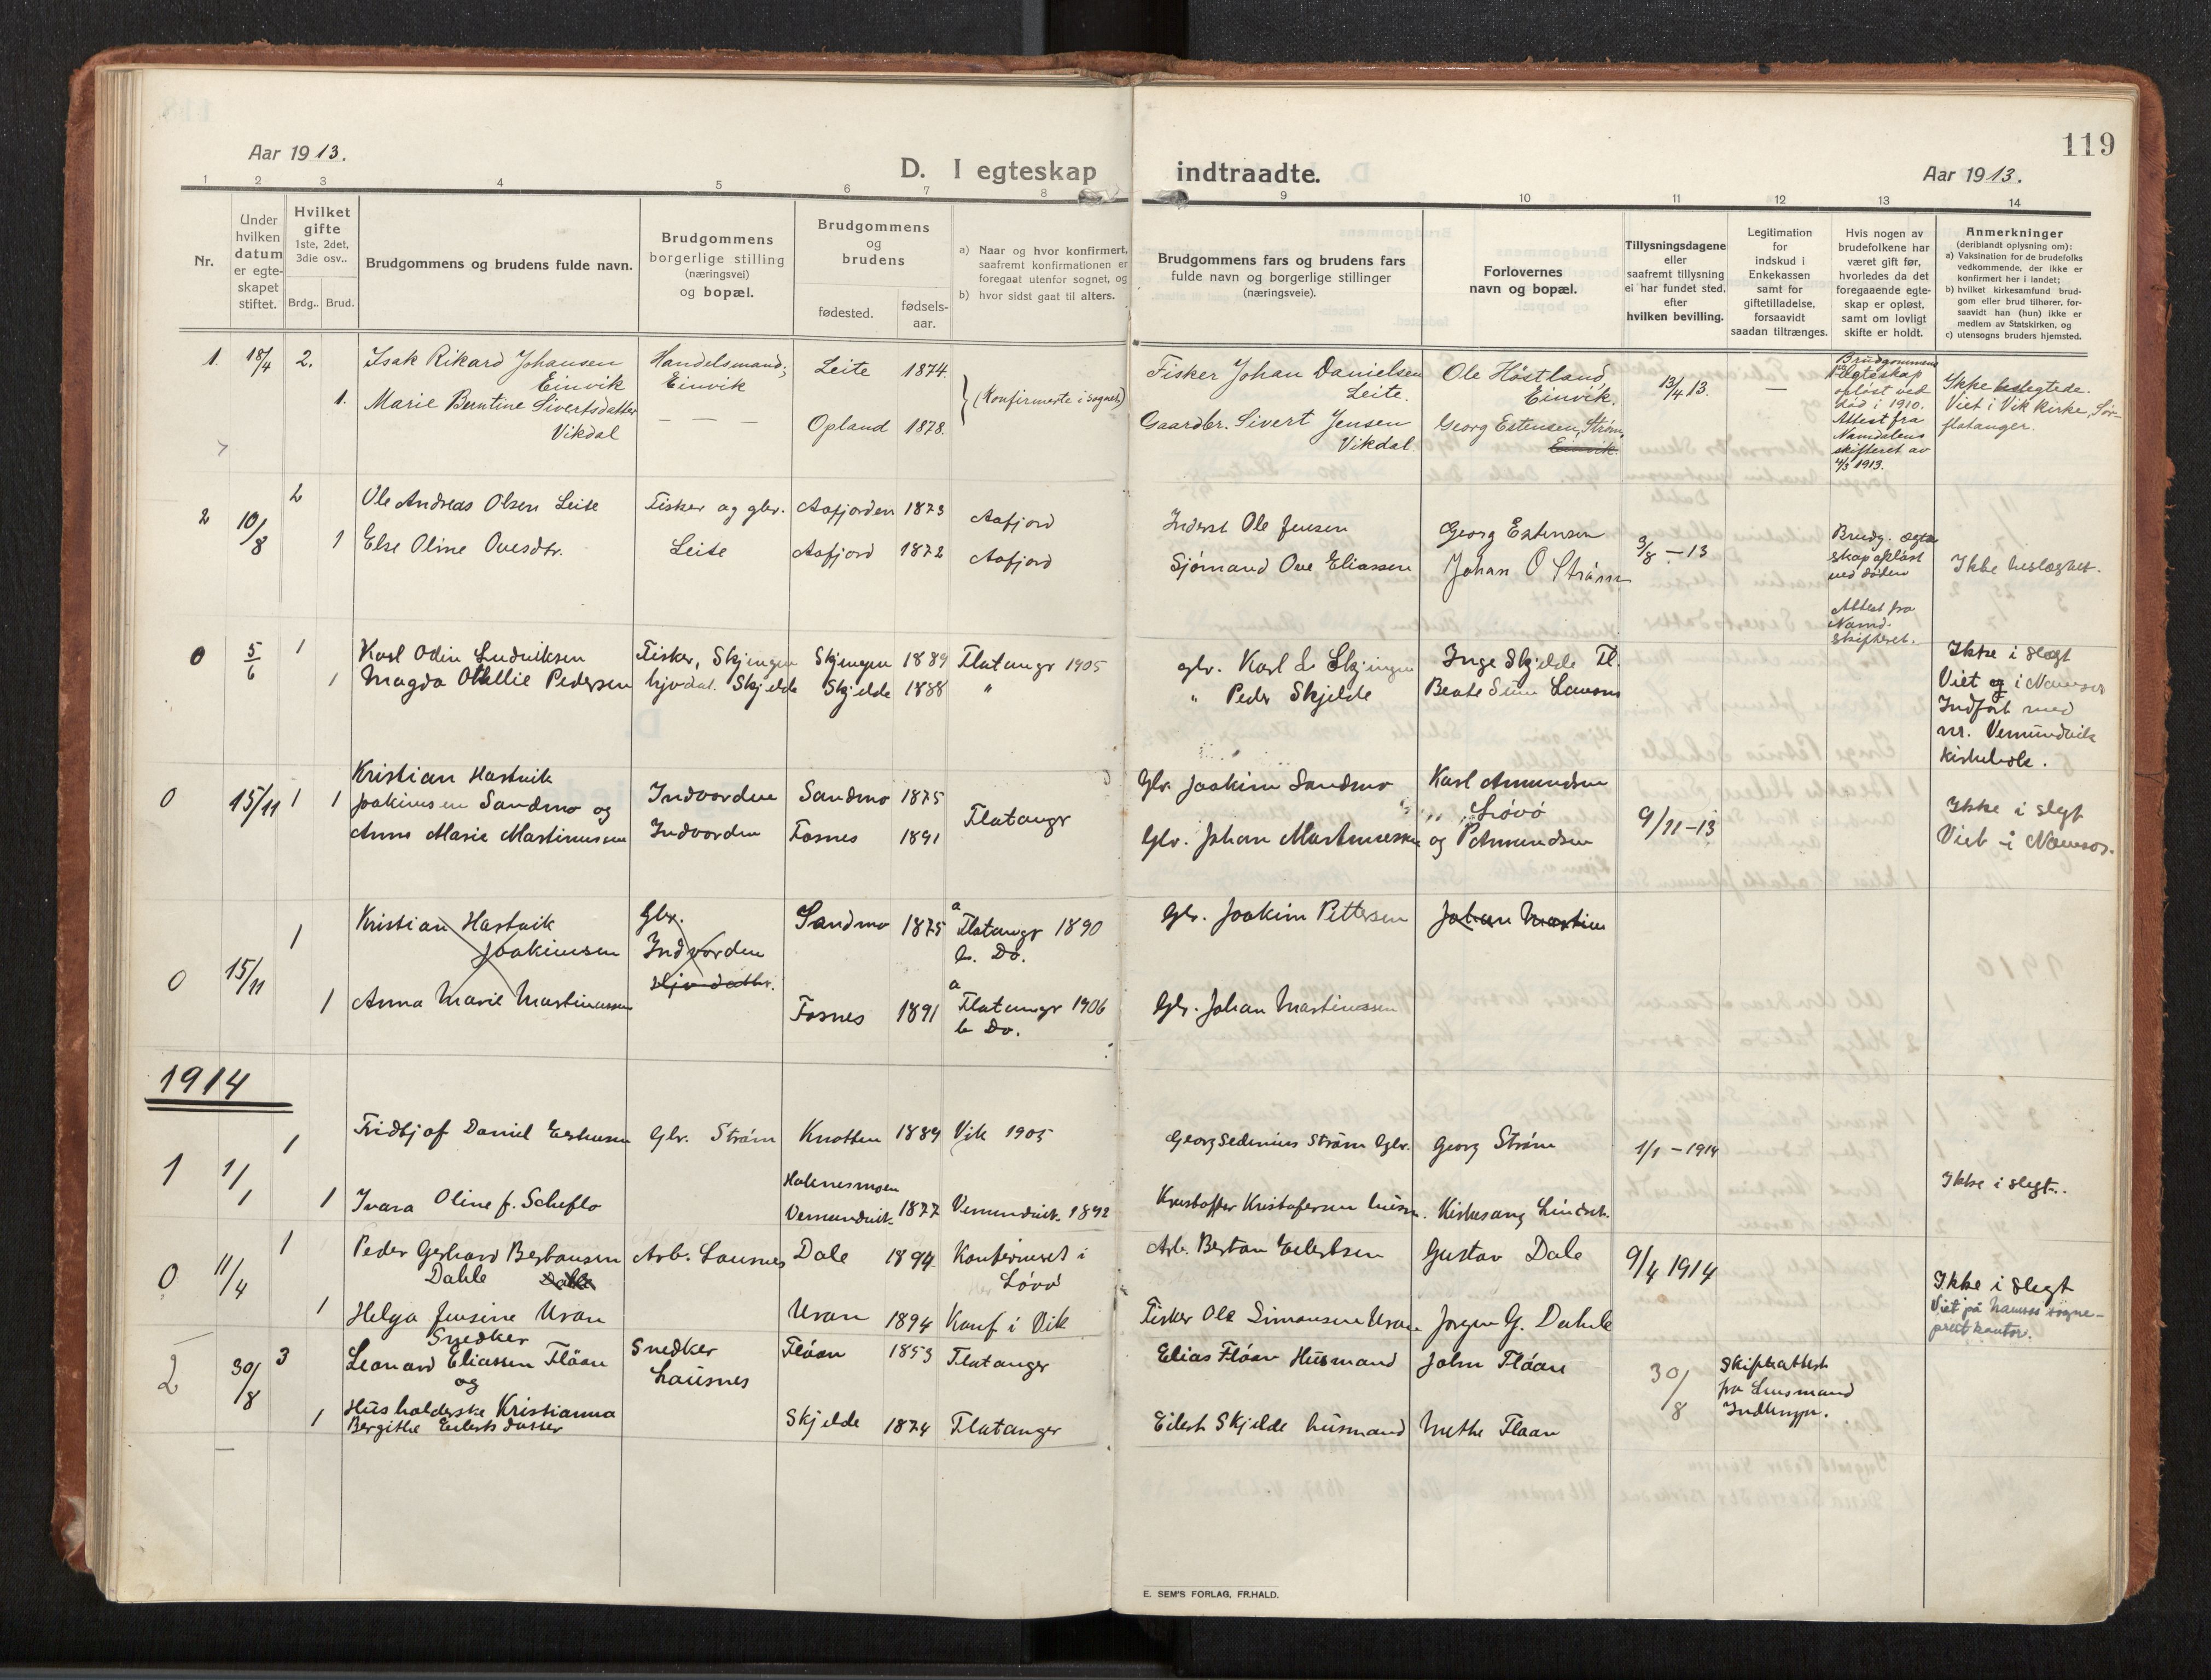 119
Aar 1913.
D. I egteskap indtraadte.
Aar 1913.
1 2 3 4 5 6 7 8 9 10 11 12 13 14
Nr.
Under hvilken datum er egte-skapet stiftet.
Hvilket gifte 1ste, 2det, 3die osv..
Brdg.. Brud.
Brudgommens og brudens fulde navn.
Brudgommens borgerlige stilling (næringsvei) og bopæl.
Brudgommens og brudens
fødested. fødsels-aar.
a) Naar og hvor konfirmert, saafremt konfirmationen er foregaat utenfor sognet, og
b) hvor sidst gaat til alters.
Brudgommens fars og brudens fars fulde navn og borgerlige stillinger (næringsveie).
Forlovernes navn og bopæl.
Tillysningsdagene eller saafremt tillysning ei har fundet sted. efter hvilken bevilling.
Legitimation for indskud i Enkekassen samt for giftetilladelse, forsaavidt saadan tiltrænges.
Hvis nogen av brudefolkene har været gift før, hvorledes da det foregaaende egte-skap er opløst, samt om lovligt skifte er holdt.
Anmerkninger (deriblandt oplysning om):
a) Vaksination for de brudefolks vedkommende, der ikke er konfirmert her i landet;
b) hvilket kirkesamfund brud-gom eller brud tilhører, for-saavidt han (hun) ikke er medlem av Statskirken, og
c) utensogns bruders hjemsted.
1. 18/4 2. Isak Rikard Johansen Einvik
Handelsmand; Einvik
Leite 1874.
(Konfirmerte i sognet)
Fisker Johan Danielsen Leite.
Ole Høstland, Einvik.
13/4 13.
—
Brudgommens Egteskap opløst ved død i 1910. Attest fra Namdalens skifteret av 4/3 1913.
Ikke beslegtede. Viet i Vik kirke, Sør-flatanger.
1. Marie Berntine Sivertsdatter Vikdal
— — —
Opland 1878.
Gaardbr. Sivert Jensen Vikdal.
Georg Estensen, Strøm, Einvik
2 10/8 2 Ole Andreas Olsen Leite
Fisker og gbr. Leite
Aafjorden 1873
Aafjord
Inderst Ole Jensen
Georg Estensen
3/8 – 13
Brudg. ægte skap opløst ved døden
Attest fra Namd. skifteret.
Ikke beslægtet.
1 Else Oline Ovesdtr.
Aafjord 1872
Aafjord
Sjømand Ove Eliassen
Johan O Strøm
0 5/6 1 Karl Odin Ludviksen
Fisker, Skjingen
Skjingen 1889
Flatangr 1905
gbr. Karl L. Skjingen
Inge Skjelde Fl.
Ikke i slegt
Viet i Namsos
Indført med
nr. Vemundvik
kirkebok.
1 Magda Otellie Pedersen
Skjelde
Skjelde 1888
"
" Peder Skjelde
0 15/11 1 1 Kristian Hastvik
Joakimsen Sandmo og
Anna Marie Martinussen
Indvorden
Indvorden
Sandmo 1875
Fosnes 1891
Flatangr
Gbr. Joakim Sandmo
Gbr. Johan Martinussen
Karl Amundsen
" " Løvø
og P Amundsen
9/11–13
Ikke i slegt
Viet i Namsos.
0 15/11 1 Kristian Hastvik Joakimsen
Gbr. Indvorden
Sandmo 1875
a Flatangr 1890
b. Do.
Gbr. Joakim Pettersen
Johan Martin
1 Anna Marie Martinussen
Fosnes 1891
a Flatangr 1906
b Do.
Gbr. Johan Martinussen
1914
1 1/1 1 Fridtjof Daniel Estensen
Gbr. Strøm
Knotten 1889
Vik 1905
Georg Sedenius Strøm Gbr.
Georg Strøm
1/1 – 1914
Ikke i slegt.
1 Ivara Oline f. Scheflo
Vemundvik 1877
Vemundvik. 1892
0 11/4 1 Peder Gerhard Bertansen Dahle
Arb. Lausnes
Dale 1894
Konfirmeret i Løvø
Arb. Bertan Eilertsen
Gustav Dale
9/4 1914
Ikke i slegt
Viet på Namsos sogne-
prestkontor.
1 Helga Jensine Uran
Uran 1894
Konf i Vik
Fisker Ole Simonsen Uran
Jørgen G. Dahle
2 30/8 3 Snedker
Leonard Eliassen Flåan
og
Snedker Lausnes
Flåan 1853
Flatanger
Elias Flåan Husmand
John Flåan
30/8
Skifteattest
fra Lensmand
1 Husholderske Kristianna
Bergithe Eilertsdatter
Skjelde 1874
Flatanger
Eilert Skjelde husmand
Methe Flaan
E. SEM'S FORLAG, FR.HALD.